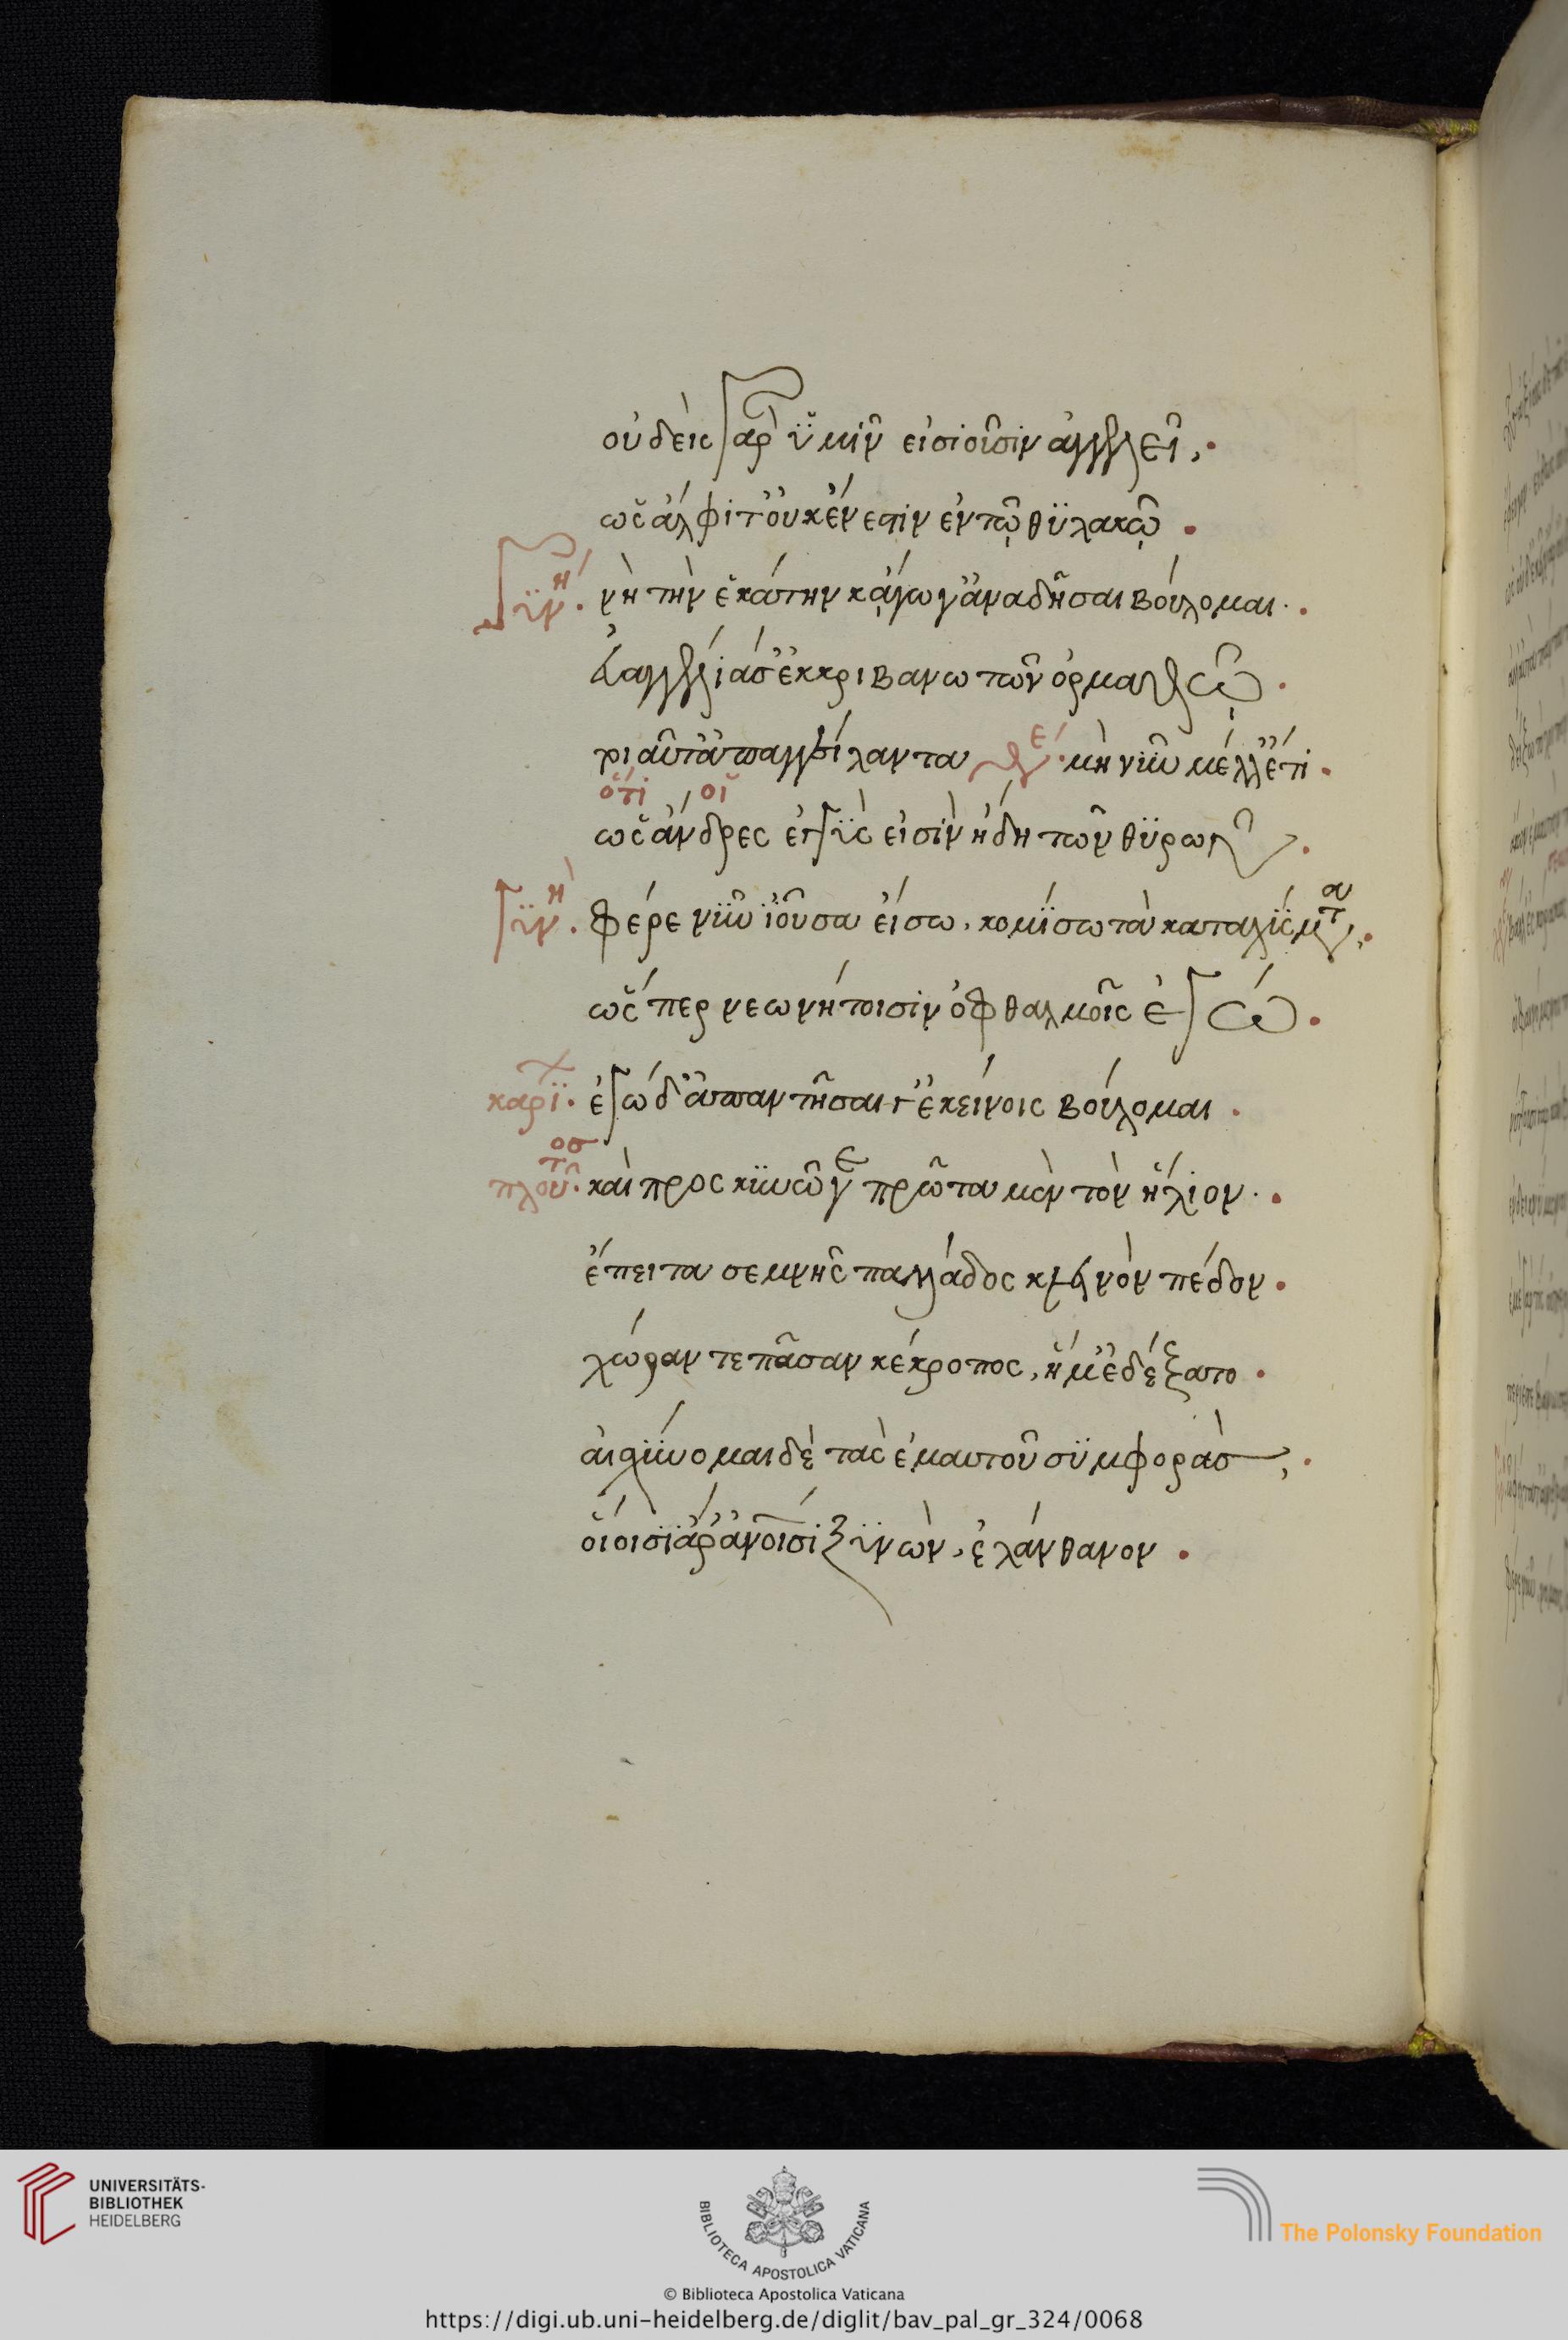 οὐδεὶς γὰρ ὑμῖν εἰσιοῦσιν ἀγγελεῖ,
ὡς ἄλφιτ' οὐκ ἔνεστιν ἐν τῷ θυλακῷ.
γυνή. νὴ τὴν ἑκάτην κᾀγὼ γ' ἀναδῆσαι βούλομαι.
εὐαγγέλιά σ' ἐκ κριβανωτῶν ὁρμαθῷ.
μὴ νῦν μέλλ' ἔτι.
ὅτι οἱ
ὡς ἅνδρες ἐγγύς εἰσὶν ἤδη τῶν θυρῶν.
γυνὴ. φέρε νῦν ἰοῦσα εἴσω, κομίσω τὰ καταχύσματα,
ὥσπερ νεωνήτοισιν ὀφθαλμοῖς ἐγώ.
καρί. ἐγὼ δ' ἀπαντῆσαι γ' ἐκείνοις βούλομαι.
πλοῦτος. καὶ προσκυνῶ γε πρῶτα μὲν τὸν ἥλιον.
ἔπειτα σεμνῆς παλλάδος κλεινὸν πέδον.
χώραν τε πᾶσαν κέκροπος, ἥ μ' ἐδέξατο.
αἰσχύνομαι δὲ τὰς ἐμαυτοῦ συμφοράς,
οἵοις ἄρ' ἀνοισι ξυνὼν, ἐλάνθανον.
UNIVERSITÄTS-
BIBLIOTHEK
HEIDELBERG
BIBLIOTECA APOSTOLICA VATICANA
The Polonsky Foundation
© Biblioteca Apostolica Vaticana
https://digi.ub.uni-heidelberg.de/diglit/bav_pal_gr_324/0068